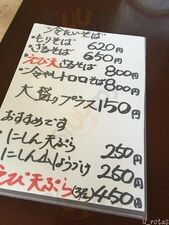 冷たいそば
・もりそば 620円
・ざるそば 650円
えび天ざるそば 800円
・冷やしトロロそば 800円
大盛りプラス150円
おすすめです
・にしん天ぷら 250円
・にしん山しょうづけ 260円
えび天ぷら(3ヶ)450円
u_rotas